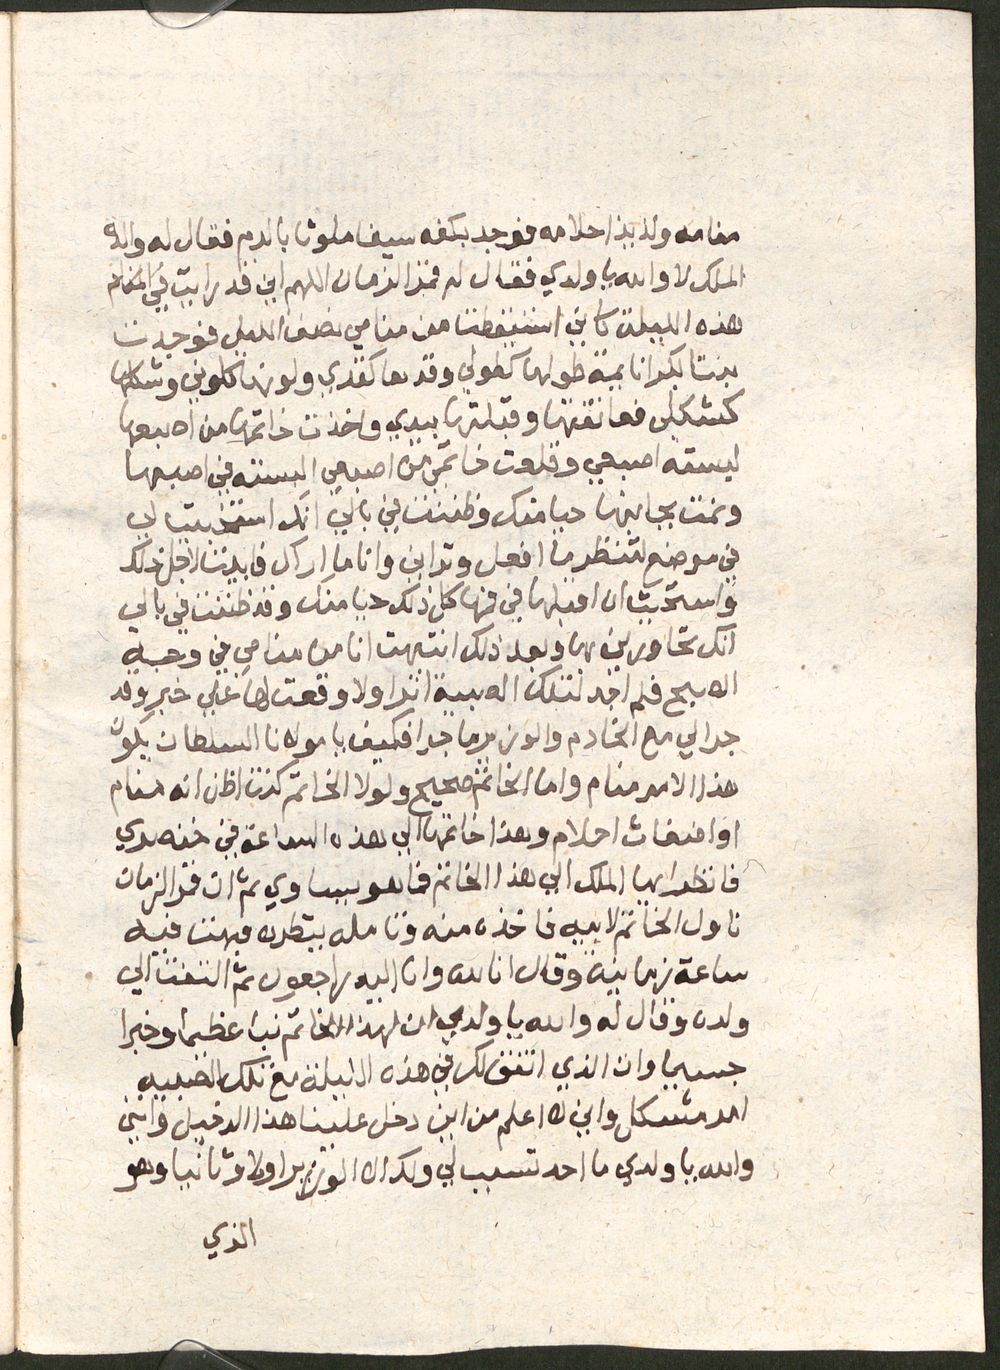 منامه ولذيذ احلامه فوجد بكفه سيفا ملوثا بالدم فقال له والده
الملك لا والله يا ولدي فقال له قمر الزمان اللهم اني قد رايت في المنام
هذه الليلة كاني استيقظت من منامي نصف الليل فوجدت
بنتا بكرا نايمة طولها كطولي وقدها كقدي ولونها كلوني وشكلها
كشكلي فعانقتها وقبلتها بيدي واخذت خاتمها من اصبعها
لبسته اصبعي وقلعت خاتمي من اصبعي البسته في اصبعها
ونمت بجانبها حيا منك وظننت في بالي انك استخبيت لي
في موضع لتنظر ما افعل وتراني وانا ما اراك فابيت لاجل ذلك
واستحيت ان اقبلها في فمها كل ذلك حيا منك وقد ظننت في بالي
انك تحاورني بها وبعد ذلك انتبهت انا من منامي في وجه
الصبح فلم اجد لتلك الصبية اثرا ولا وقعت لها علي خبر وقد
جرا لي مع الخادم والوزير ما جرا فكيف يا مولانا السلطان يكون
هذا الامر منام واما الخاتم صحيح ولولا الخاتم كنت اظن انه منام
او اضغاث احلام وهذا خاتمها الي هذه الساعة في خنصري
فانظر ايها الملك الي هذا الخاتم فما هو يساوي ثم ان قمر الزمان
ناول الخاتم لابيه فاخذه منه وتامله ينظره فبهت فيه
ساعة زمانية وقال انا لله وانا اليه راجعون ثم التفت الي
ولده وقال له والله يا ولدي ان لهذا الخاتم نبا عظيما وخبرا
جسيما وان الذي اتفق لك في هذه الليلة مع تلك الصبيه
امر مشكل واني لا اعلم من اين دخل علينا هذا الدخيل وانني
والله يا ولدي ما احد تسبب لي ولك الا الوزير اولا وثانيا وهو
الذي